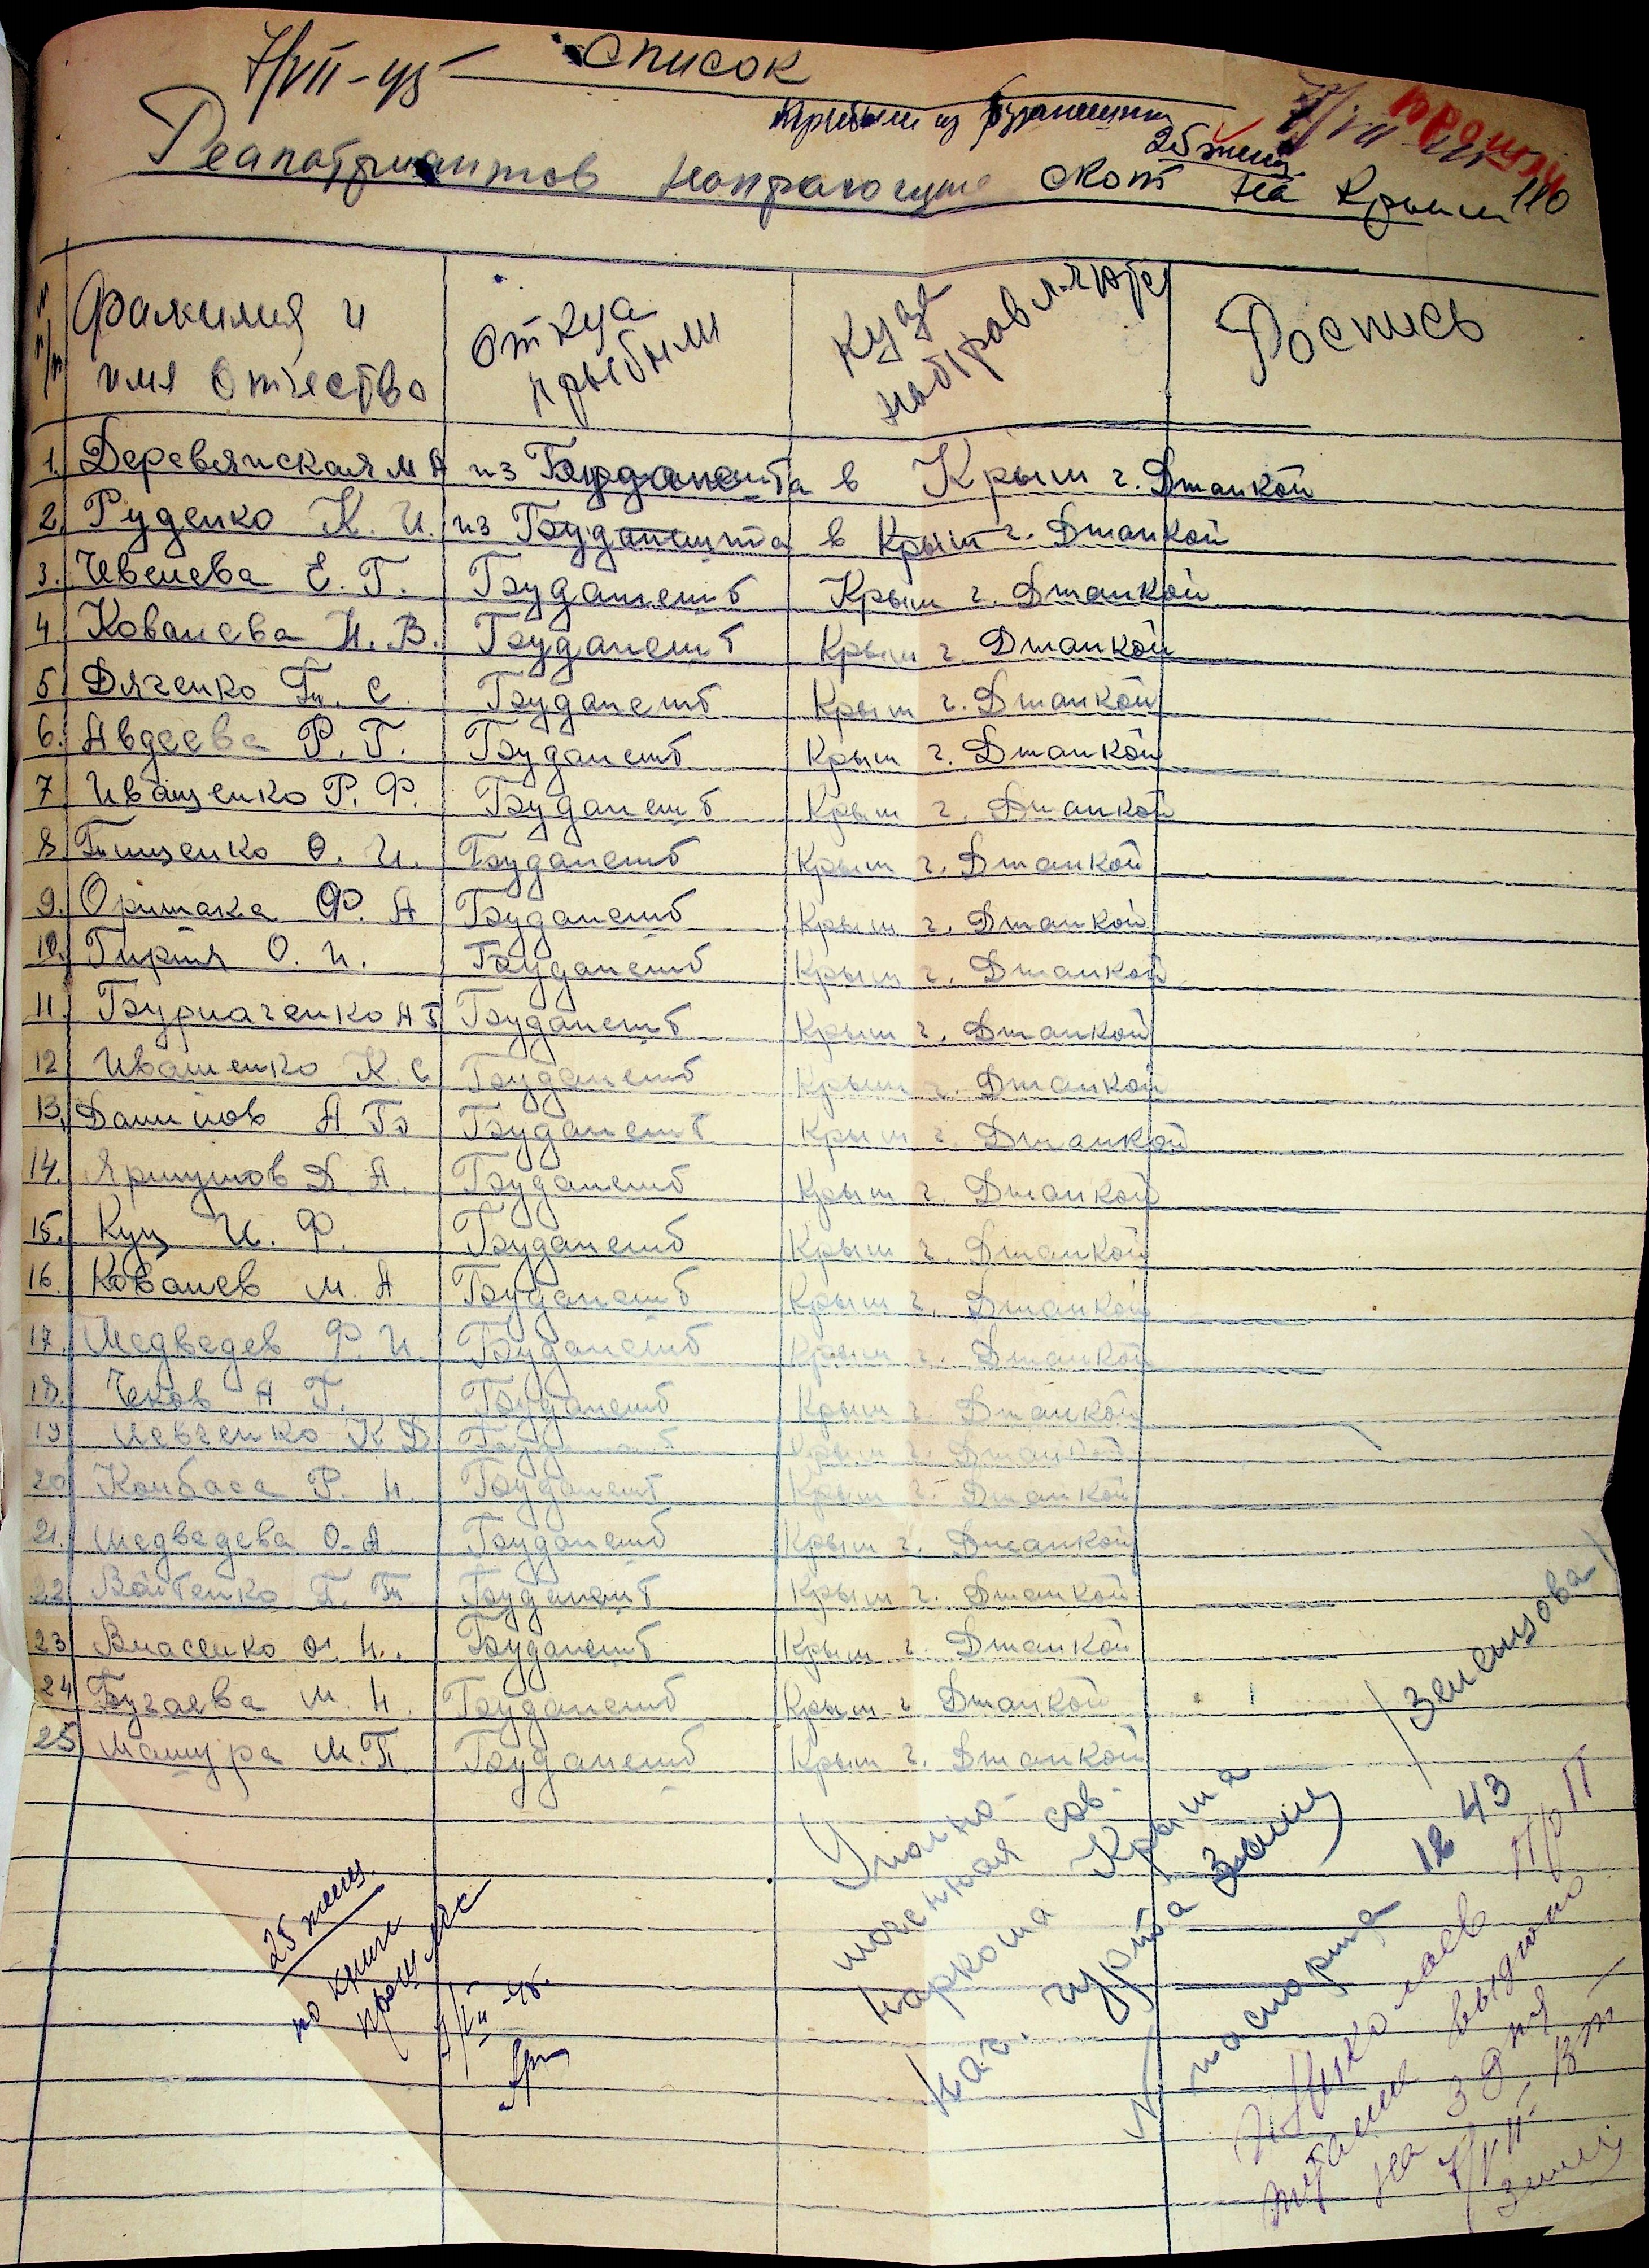 7/VII-45 Список
прибыли из Будапешта
25 жен
Реапотриантов сопрагающие скот на Крым 110
п/п Фамилия и имя Отчество Откуда прыбыли Куда напровляютса Роспись
1. Деревянская М А из Будапешта в Крым г. Джанкой
2. Руденко К. И. из Будапешта в Крым г. Джанкой
3. Е. Г. Будапешт Крым г. Джанкой
4. Ковалева Н. В. Будапешт Крым г. Джанкой
5. Дяченко П. С. Будапешт Крым г. Джанкой
6. Авдеева Р. Г. Будапешт Крым г. Джанкой
7. Иващенко Р. Ф. Будапешт Крым г. Джанкой
8. Тищенко О. И. Будапешт Крым г. Джанкой
9. Ф. А Будапешт Крым г. Джанкой
10. Гиря О. И. Будапешт Крым г. Джанкой
11. Бурлаченко А Т Будапешт Крым г. Джанкой
12 Иващенко К. С Будапешт Крым г. Джанкой
13. Данилов А Б Будапешт Крым г. Джанкой
14. Д. А. Будапешт Крым г. Джанкой
15. Куц И. Ф. Будапешт Крым г. Джанкой
16. Ковалев М. А Будапешт Крым г. Джанкой
17. Медведев Ф. И. Будапешт Крым г. Джанкой
18. Чехов А Г. Будапешт Крым г. Джанкой
19 Левченко К. Д Крым г. Джанкой
20 Колбаса Р. И. Будапешт Крым г. Джанкой
21. Медведева О. А. Будапешт Крым г. Джанкой
22 Войтенко П. Будапешт Крым г. Джанкой
23 Власенко И. Будапешт Крым г. Джанкой
24 Бугаева М. И. Будапешт Крым г. Джанкой
25 Машура М. П. Будапешт Крым г. Джанкой
Уполно-
моченная сов-
наркома Крыма
нач. гурта /Земцова/
№ паспорта 12 43
25 жен
по книге
7/VII-45.
Николаев
питание выдано
на 3 дня
7/VII